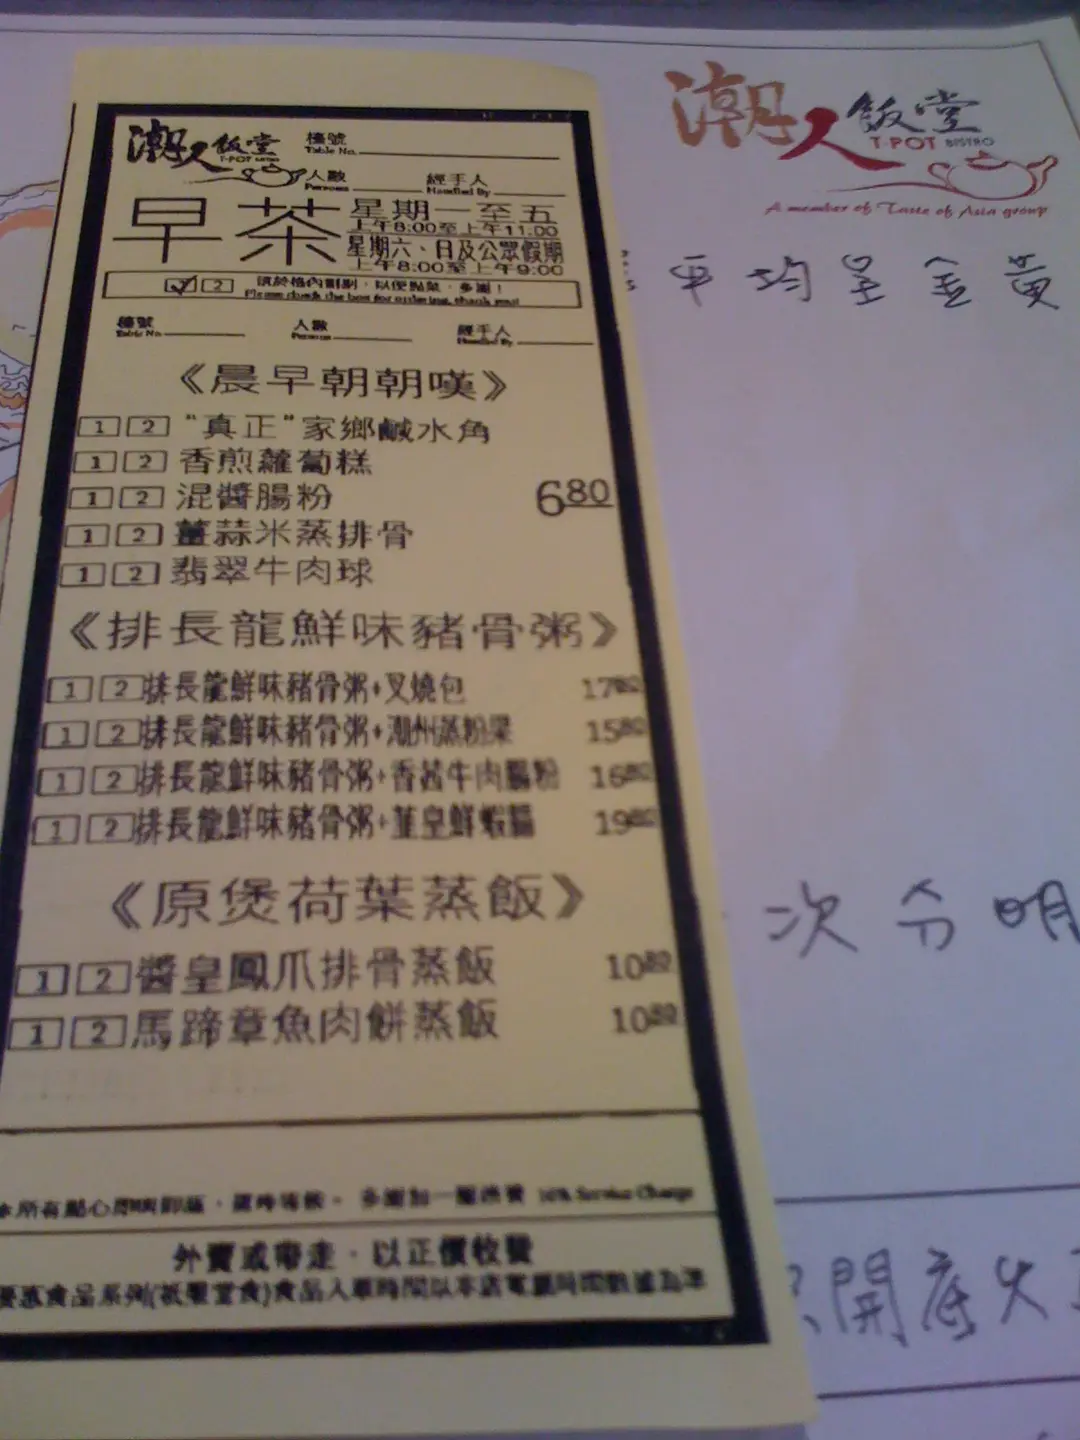 潮人飯堂
T-POT BISTRO
檯號
Table No.
人數
Persons
經手人
Handled By
早茶
星期一至五
上午8:00至上午11:00
星期六、日及公眾假期
上午8:00至上午9:00
1 2 須於格內劃剔，以便點菜，多謝！
Please check the box for ordering, thank you!
檯號 人數 經手人
Table No. Persons Handled By
《晨早朝朝嘆》
1 2 “真正”家鄉鹹水角
1 2 香煎蘿蔔糕
1 2 混醬腸粉 6.80
1 2 薑蒜米蒸排骨
1 2 翡翠牛肉球
《排長龍鮮味豬骨粥》
1 2 排長龍鮮味豬骨粥+叉燒包 17.80
1 2 排長龍鮮味豬骨粥+潮州蒸粉粿 15.80
1 2 排長龍鮮味豬骨粥+香茜牛肉腸粉 16.80
1 2 排長龍鮮味豬骨粥+韮皇鮮蝦腸 19.80
《原煲荷葉蒸飯》
1 2 醬皇鳳爪排骨蒸飯 10.80
1 2 馬蹄章魚肉餅蒸飯 10.80
所有點心 多謝加一服務費 10% Service Charge
外賣或帶走，以正價收費
優惠食品系列(祇限堂食)食品入單時間以本店電腦時間數據為準
潮人飯堂
T-POT BISTRO
A member of Taste of Asia group
平均呈金黃
次分明
開底火